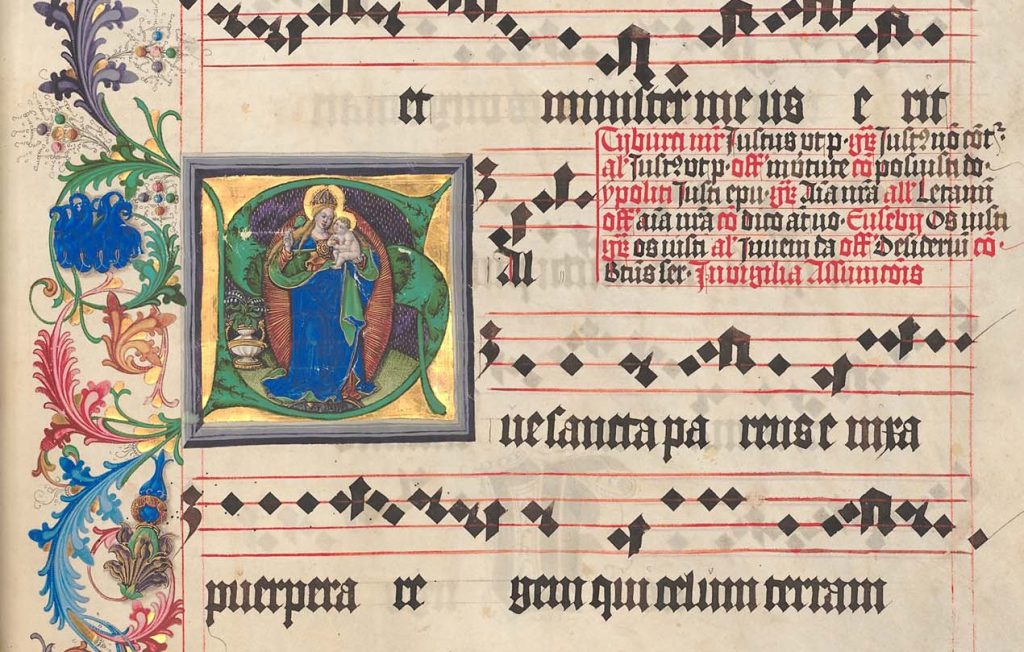 et minister meus e rit
Tyburci mr Justus vt p. gr Just9 nō cōt
al Just9 vt p. off In v̄tute cō posuisti do.
ypoliti Justi epu. gr Aīa nrā all Letamī
off aīa nrā cō dico at vo. Eusebij Os iusti
gr os iusti al Juuem da off Desideriū cō.
Btūs ser. In vigilia Assumtōis
Sal
ue sancta pa rens e nixa
puerpera re gem qui celum terram